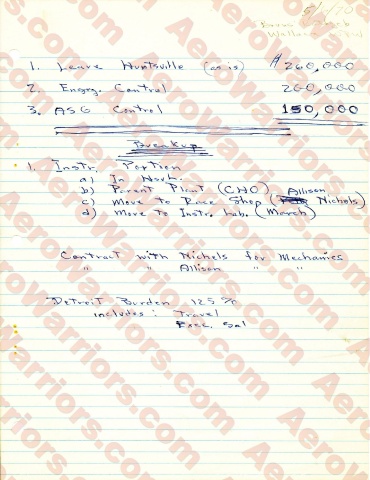 5/1/70
1. Leave Huntsville (as is) $260,000
2. Engrg. Control 200,000
3. ASG Control 150,000
Breakup
1. Instr. Portion
a) In Hsvl.
b) Parent Plant (CHO, Allison
c) Move to Race Shop (Nichels)
d) Move to Instr. Lab. (March)
Contract with Nichels for Mechanics
" " Allison " "
Detroit Burden 125%
includes: Travel
Exec. Sal
AeroWarriors.com